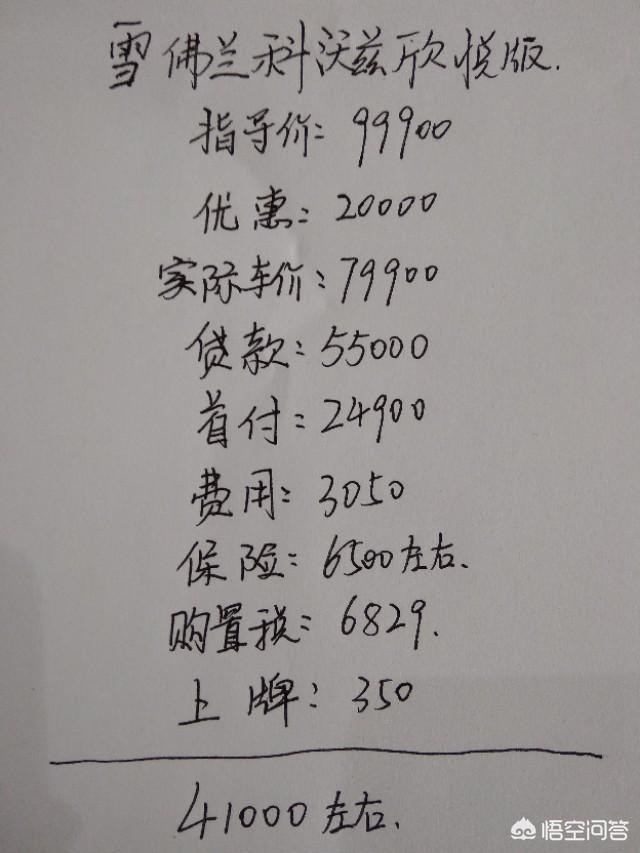 雪佛兰科沃兹欣悦版.
指导价: 99900
优惠: 20000
实际车价: 79900
贷款: 55000
首付: 24900
费用: 3050
保险: 6500左右.
购置税: 6829.
上牌: 350
41000左右.
悟空问答